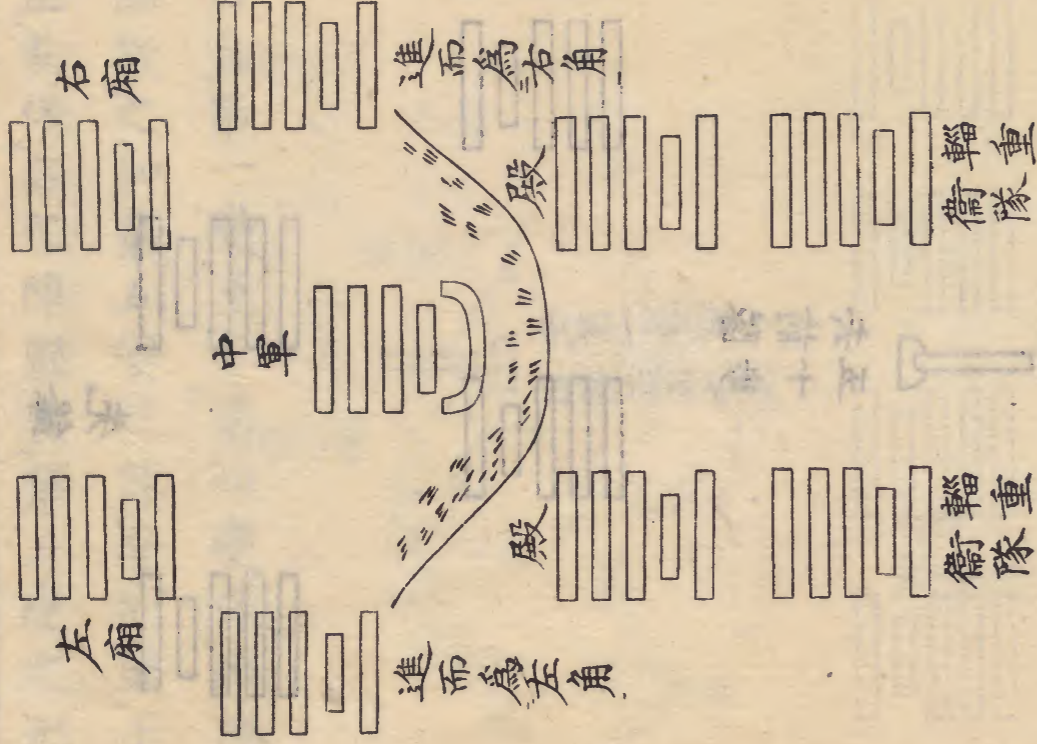 右廂
進而爲右角
殿
輜重
衞隊
中軍
左廂
進而爲左角
殿
輜重
衞隊